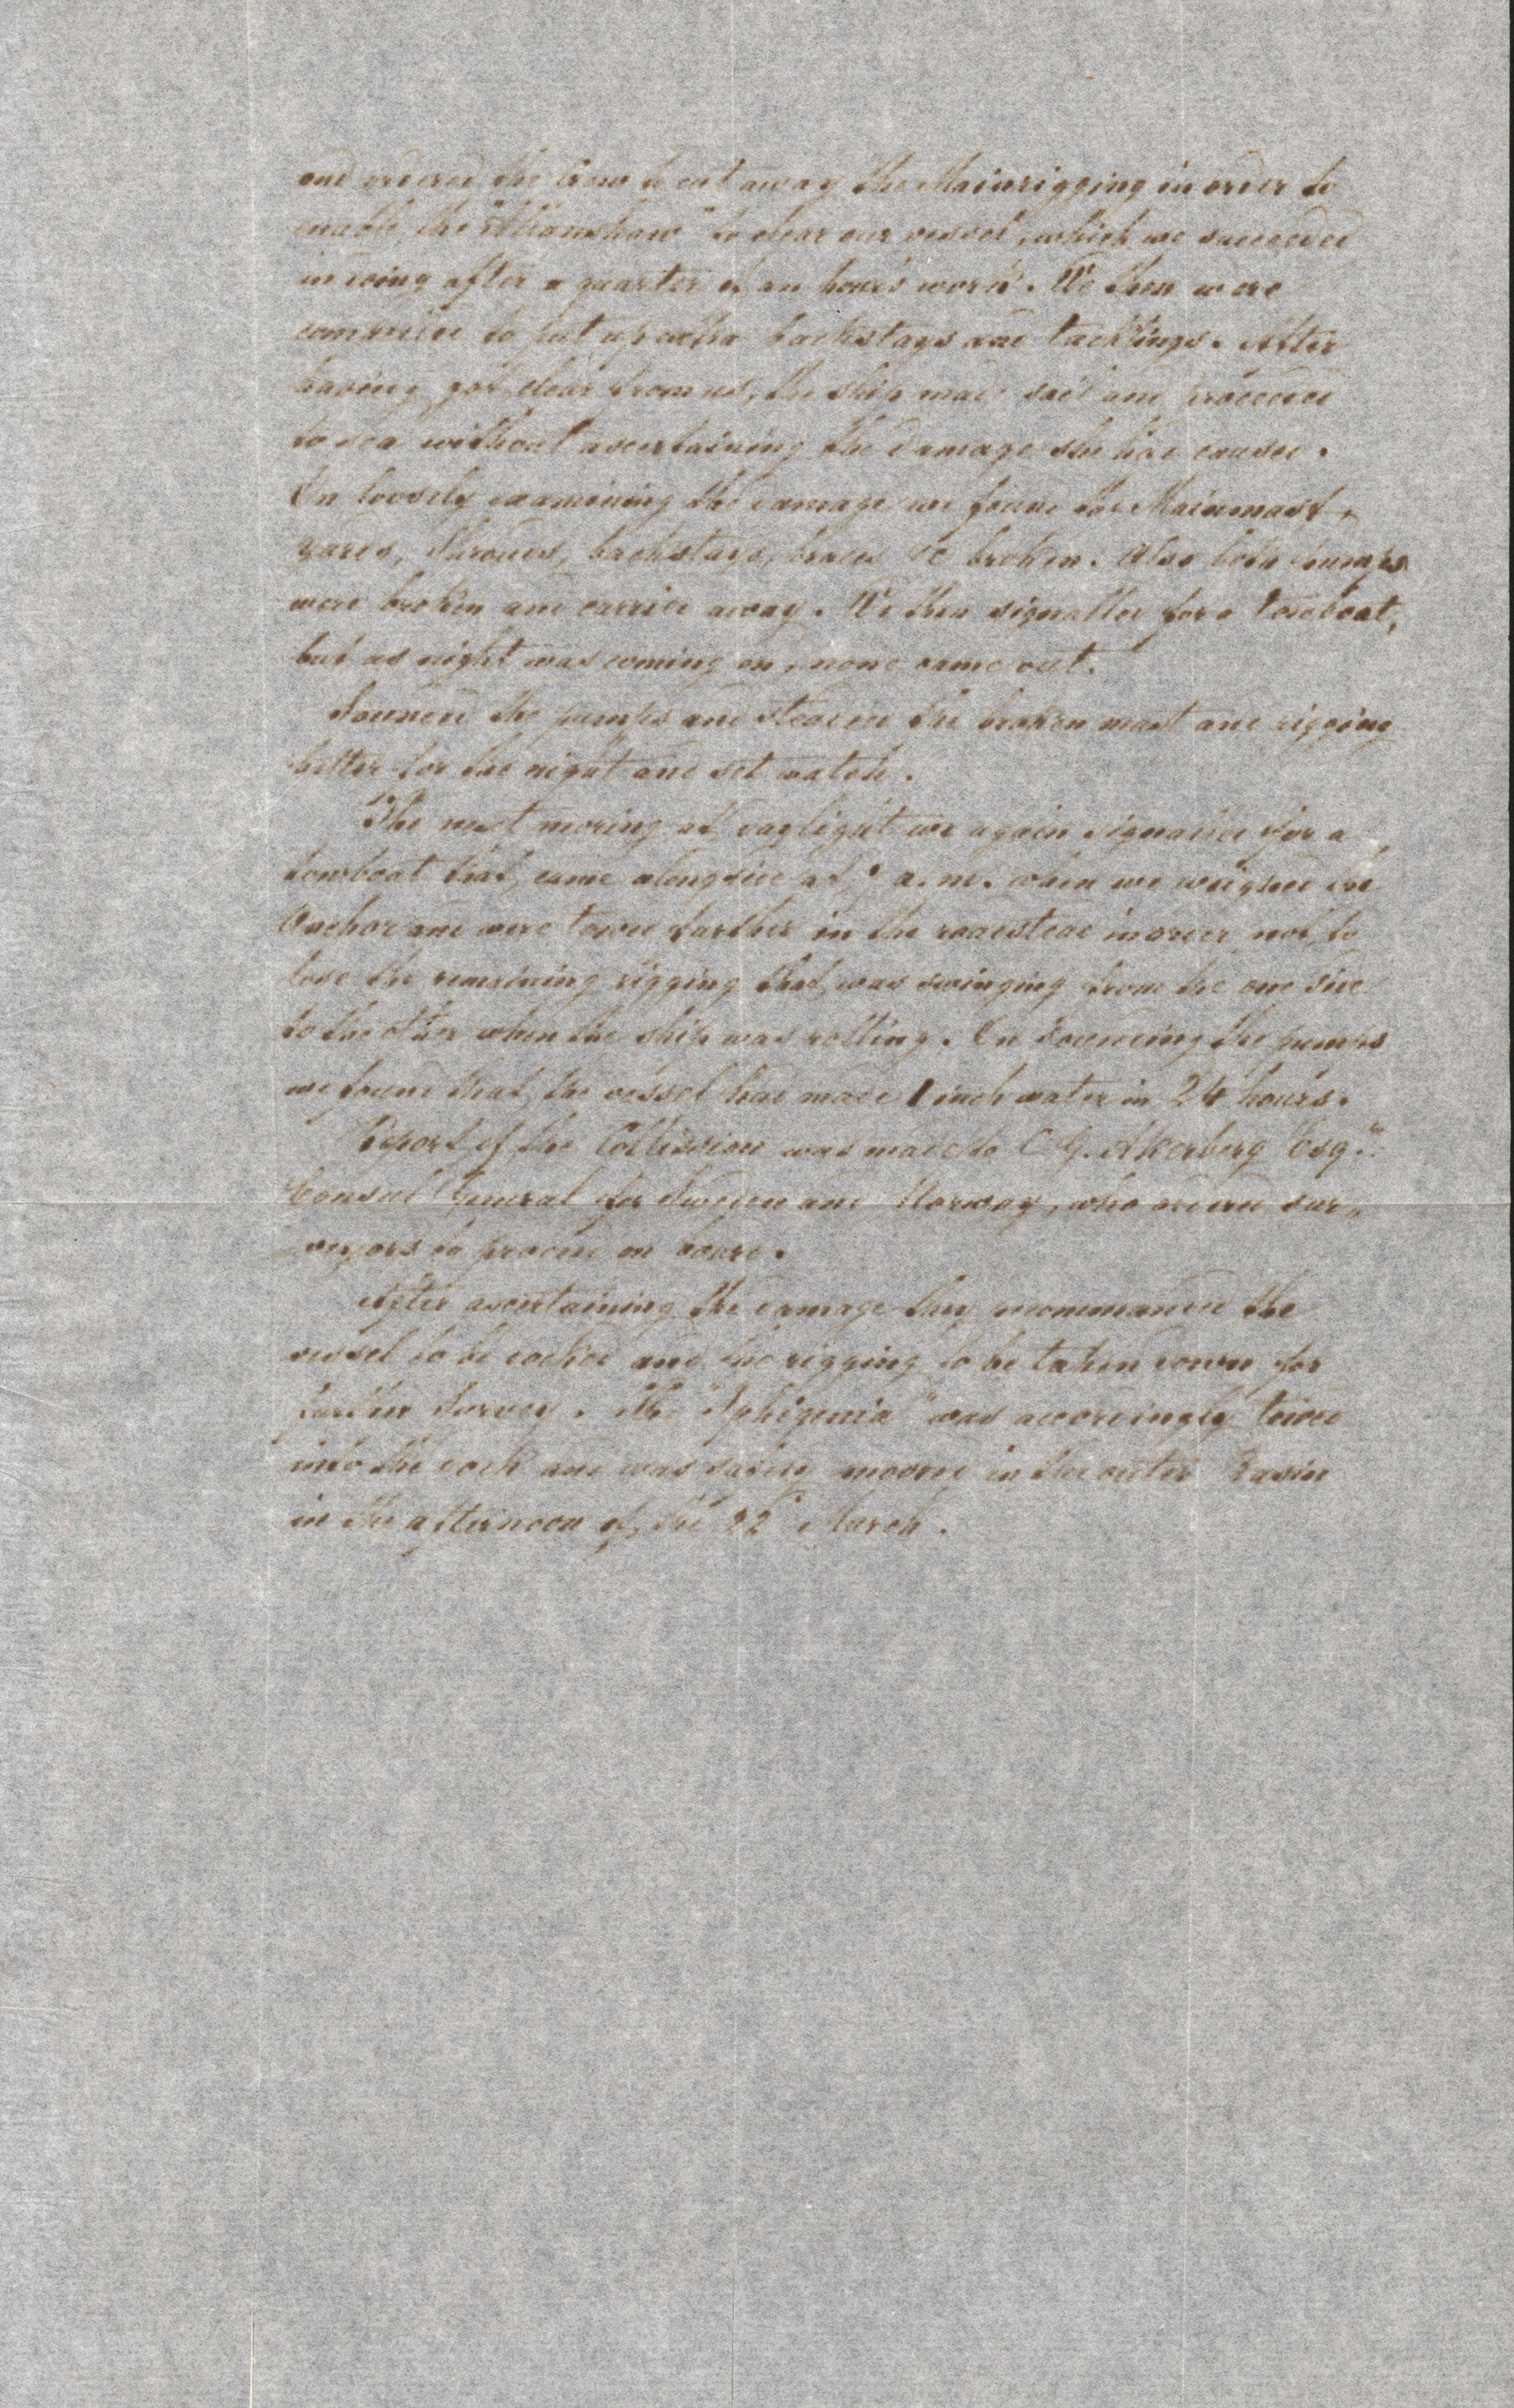 and ordered the crew to cut away the Mainrigging in order to
enable the " " to clear our vessel, which we succeeded
in doing after a quarter of an hour's work. We then were
compelled to put up other backstays and tacklings. After
having got clear from us, the ship made sail and proceeded
to sea without ascertaining the damage she had caused.
On loosely examining the damage we found the Mainmast,
yards, Shrouds, backstays, braces &c broken. Also both pumps
were broken and carried away. We then signalled for a towboat,
but as night was coming on, none came out.
Sounded the pumps and steadied the broken mast and rigging
better for the night and set watch.
The next moring at daylight we again signalled for a
towboat that came alongside at a.m. when we weighed the
Anchor and were towed further in the roadstead in order not to
lose the remaining rigging that was swinging from the one side
to the other when the ship was rolling. On sounding the pumps
we found that the vessel had made 1 inch water in 24 hours.
Report of the Collission was made to C G. Akerberg Esq.re
Consul General for Sweden and Norway, who ordered sur„
veyors to proceed on board.
After ascertaining the damage they recommanded the
vessel to be docked and the rigging to be taken down for
further Survey. The "Iphigenia" was accordingly towed
into the dock and was safely moored in the outer Basin
in the afternoon of the 22d March.